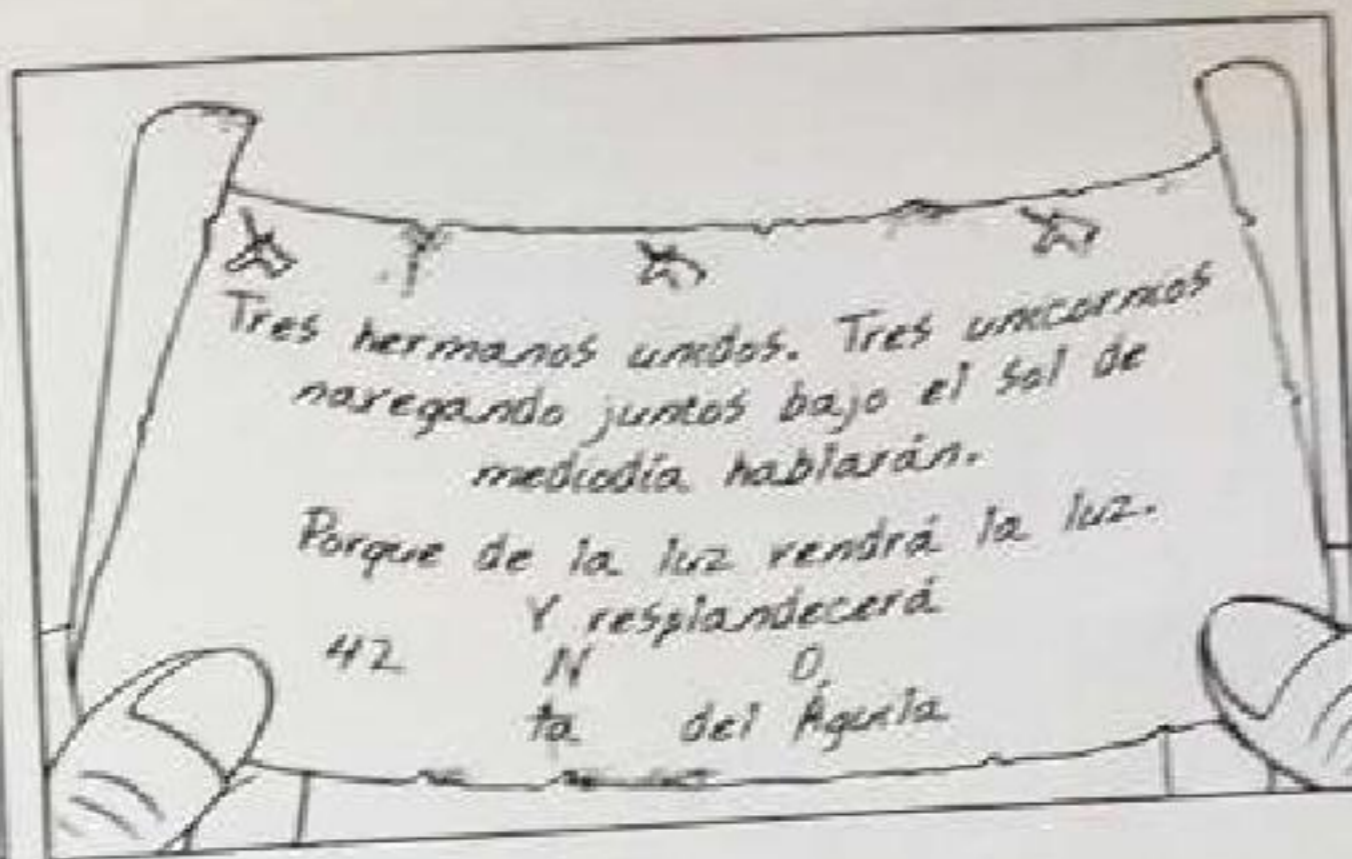 Tres hermanos unidos. Tres unicornios
navegando juntos bajo el Sol de
mediodía hablarán.
Porque de la luz vendrá la luz.
Y resplandecerá
42 N O
ta del Águila